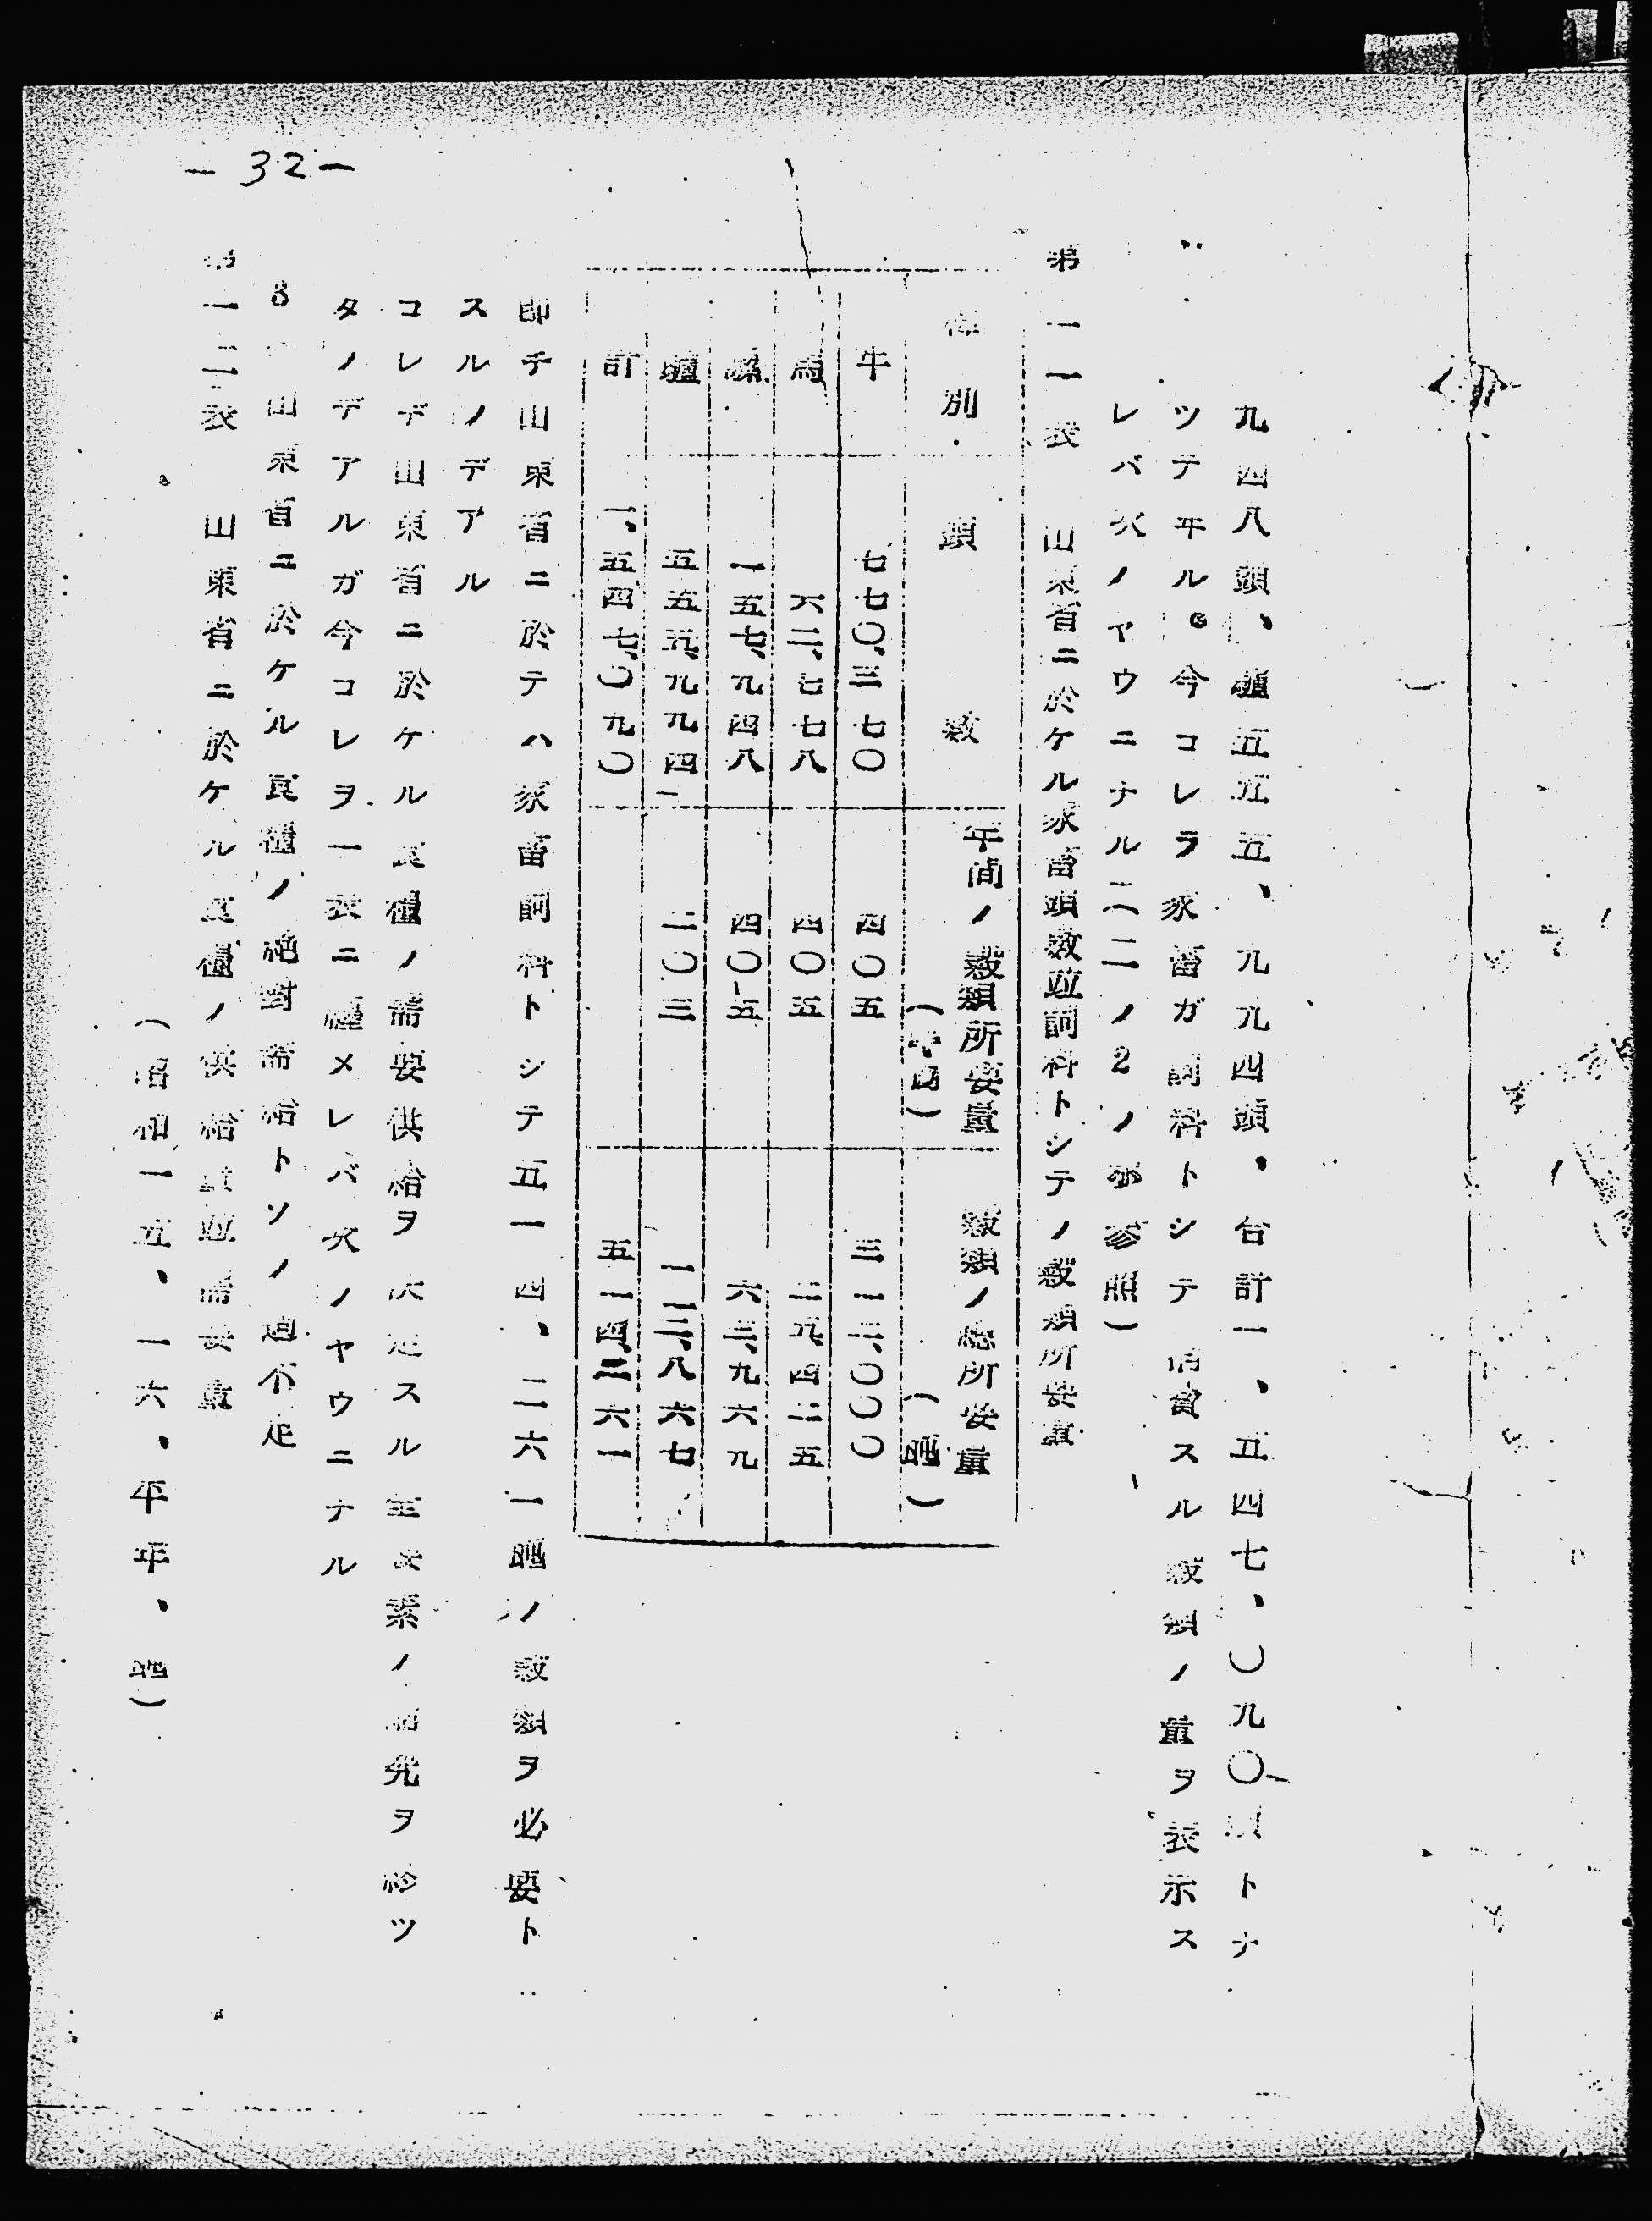 — 32 —
九四八頭、驢五五五、九九四頭。合計一、五四七、〇九〇頭トナ
ツテヰル。今コレラ家畜ガ飼料トシテ消費スル穀類ノ量ヲ表示ス
レバ次ノヤウニナル(二ノ2ノ参照)
第一一表 山東省ニ於ケル家畜頭数並飼料トシテノ穀類所要量
種別 頭数 年間ノ穀類所要量 穀類ノ総所要量
牛 七七〇、三七〇 四〇五 三一二、〇〇〇
馬 六二、七七八 四〇五 二五、四二五
騾 一五七、九四八 四〇五 六三、九六九
驢 五五五、九九四 二〇三 一一二、八六七
計 一、五四七、〇九〇 五一四、二六一
即チ山東省ニ於テハ家畜飼料トシテ五一四、二六一瓲ノ穀類ヲ必要ト
スルノデアル
コレデ山東省ニ於ケル食糧ノ需要供給ヲ決定スル主要素ノ説究ヲ終ツ
タノデアルガ今コレヲ一表ニ纏メレバ次ノヤウニナル
8 山東省ニ於ケル食糧ノ絶対需給トソノ過不足
第一二表 山東省ニ於ケル食糧ノ供給量並需要量
(昭和一五、一六、平年、瓲)